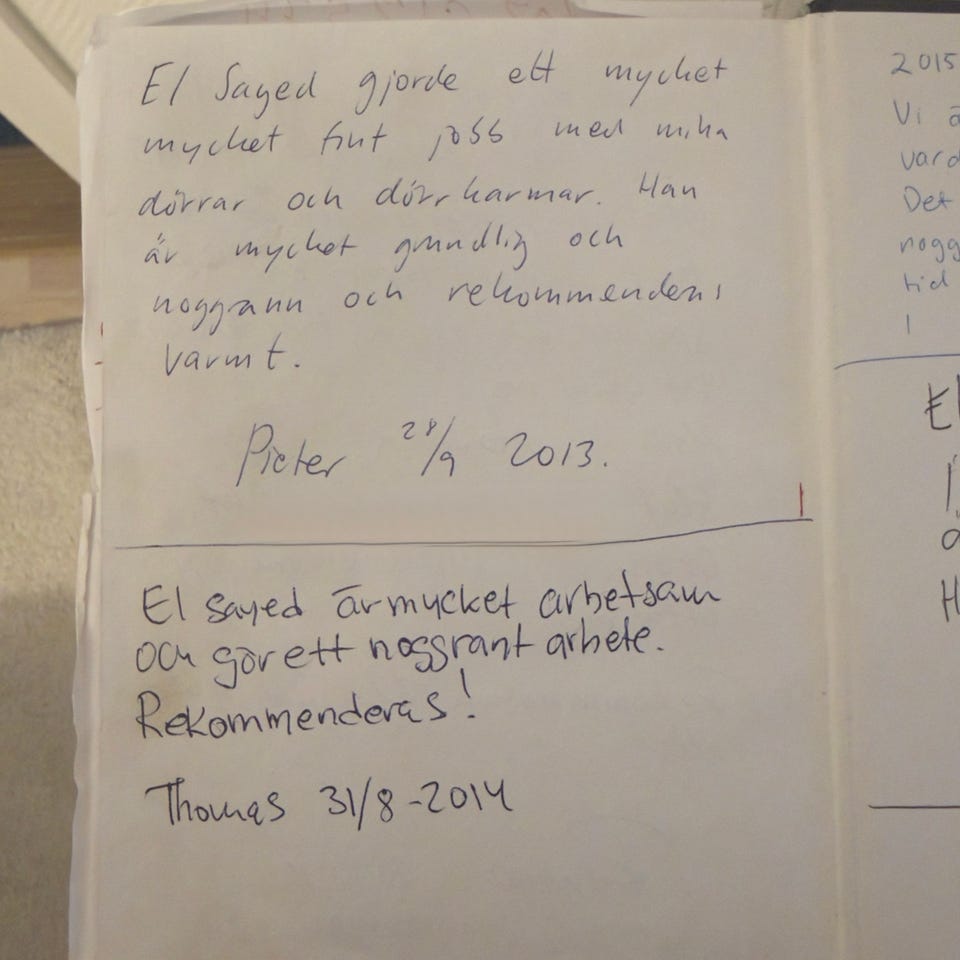 El Sayed gjorde ett mycket
mycket fint jobb med mina
dörrar och dörrkarmar. Han
är mycket grundlig och
noggrann och rekommenderas
varmt.
Pieter 28/9 2013.
El sayed är mycket arbetsam
och gör ett noggrant arbete.
Rekommenderas!
Thomas 31/8-2014
2015
Vi
Det
tid